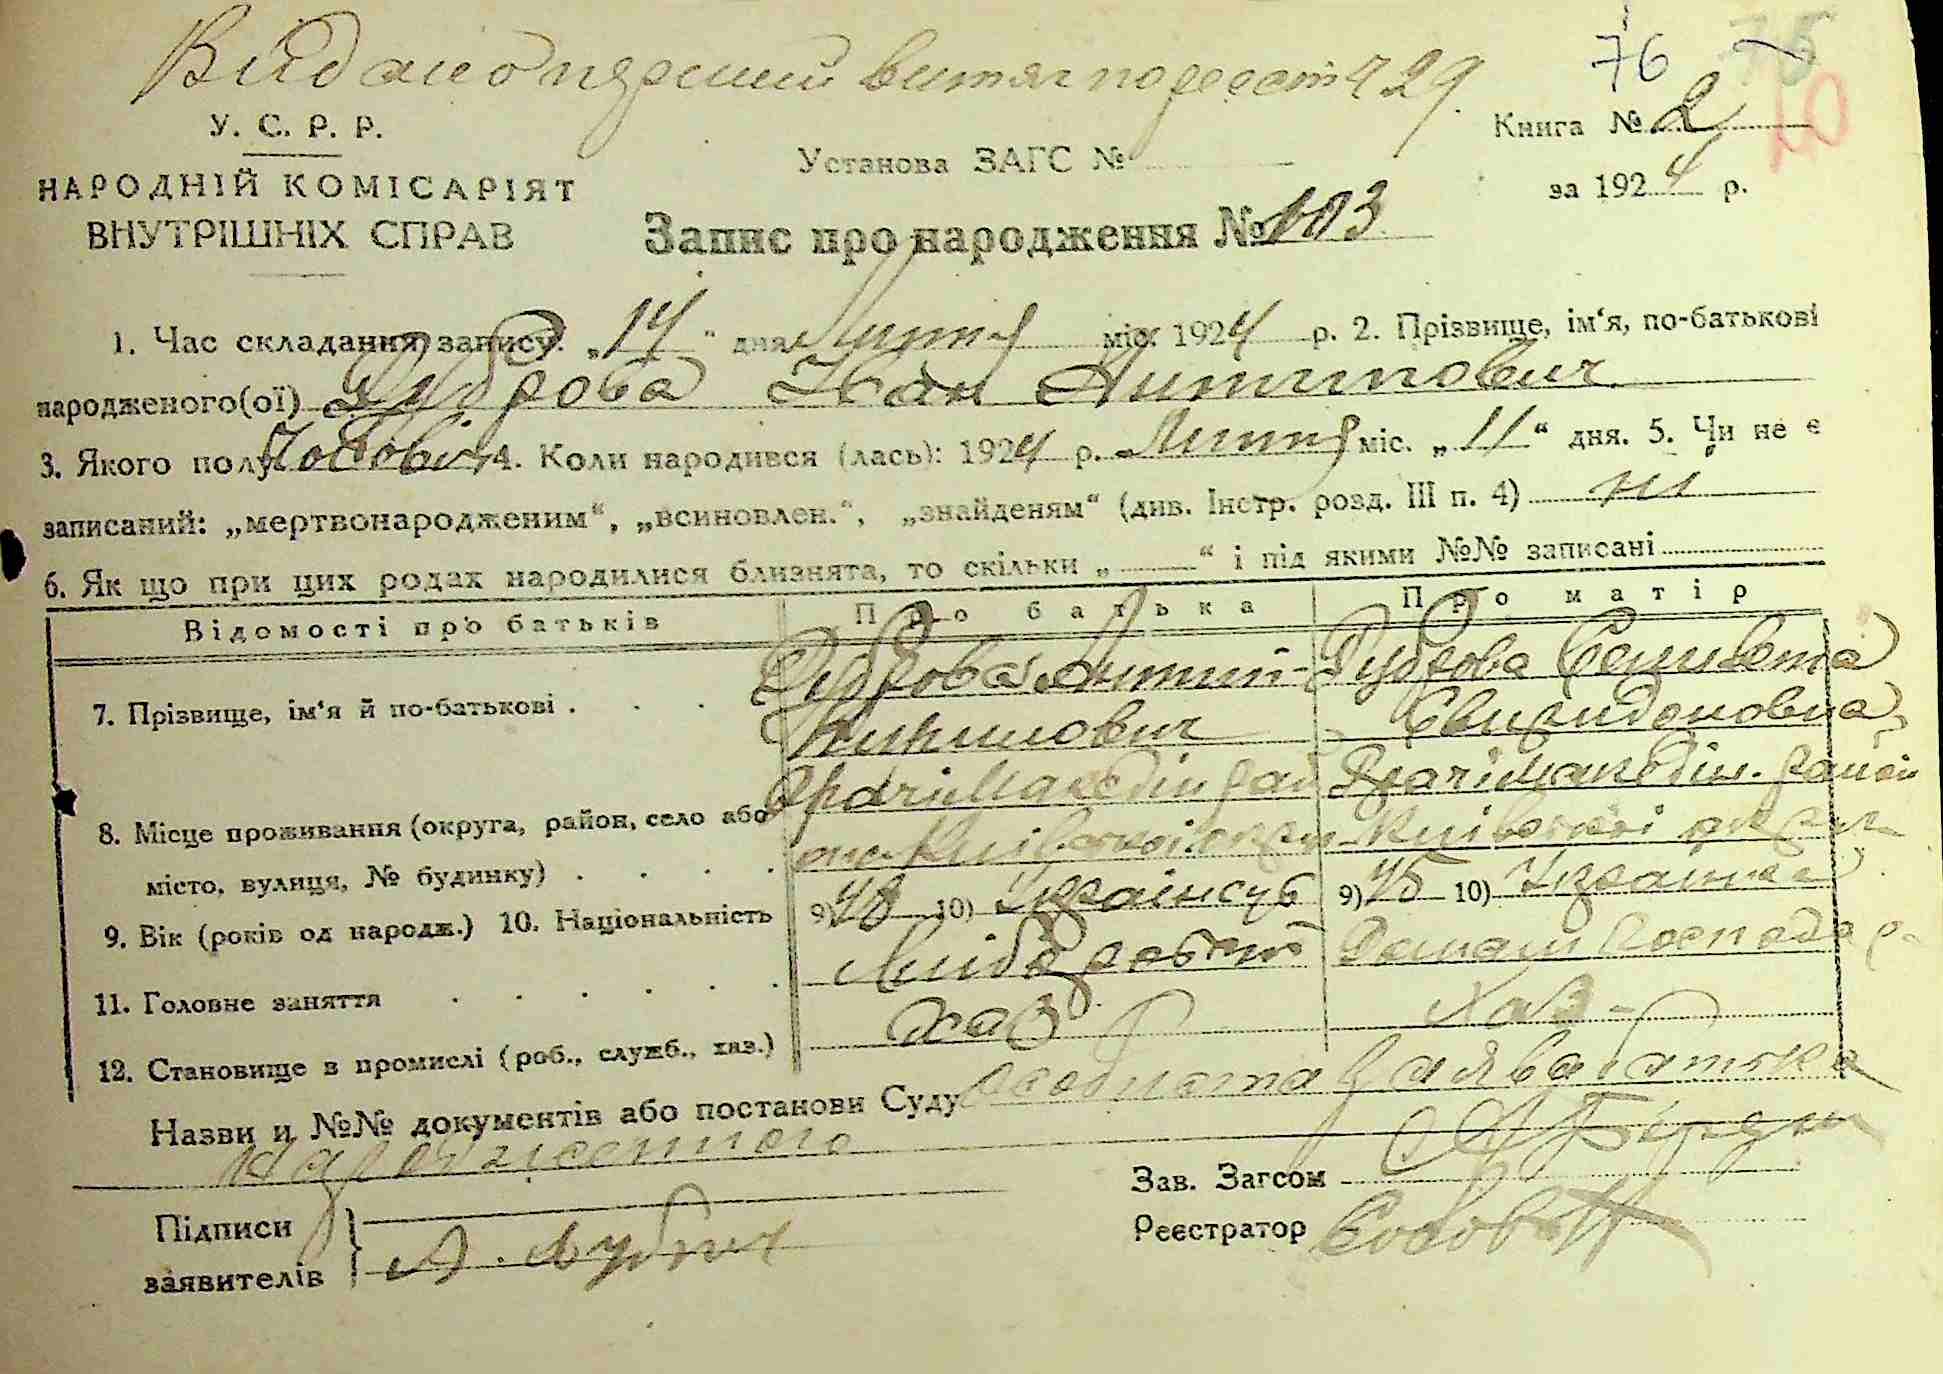 Видано перший витяг по реест 429
76
75
10
У. С. Р. Р.
НАРОДНІЙ КОМІСАРІЯТ
ВНУТРІШНІХ СПРАВ
Установа ЗАГС №
Книга № 2
за 1924 р.
Запис про народження № 103
1. Час складання запису: „14" дня Липня міс. 1924 р. 2. Прізвище, ім'я, по-батькові
народженого(ої) Дуброва Іван Антипович
3. Якого полу Чоловічa 4. Коли народився (лась): 1924 р. Липня міс. „11" дня. 5. Чи не є
записаний: „мертвонародженим", „всиновлен.", „знайденям" (див. Інстр. розд. III п. 4) ні
6. Як що при цих родах народилися близнята, то скільки „ " і під якими №№ записані
Відомості про батьків Про батька Про матір
7. Прізвище, ім'я й по-батькові . . . Дуброва Антип Дуброва
Свиридоновна
8. Місце проживання (округа, район, село або Драчі Македін рай Драчі Македін. район
місто, вулиця, № будинку) . . . . Київської округи Київської округи
9. Вік (років од народж.) 10. Національність 9) 48 10) Українсць 9) 45 10) Українка
11. Головне заняття . . . . . . хлібороб Домаш господар
12. Становище в промислі (роб., служб., хаз.) хаз хаз-
Назви и №№ документів або постанови Суду особиста заява батька
народженного
Підписи
заявителів А.
Зав. Загсом
Реєстратор